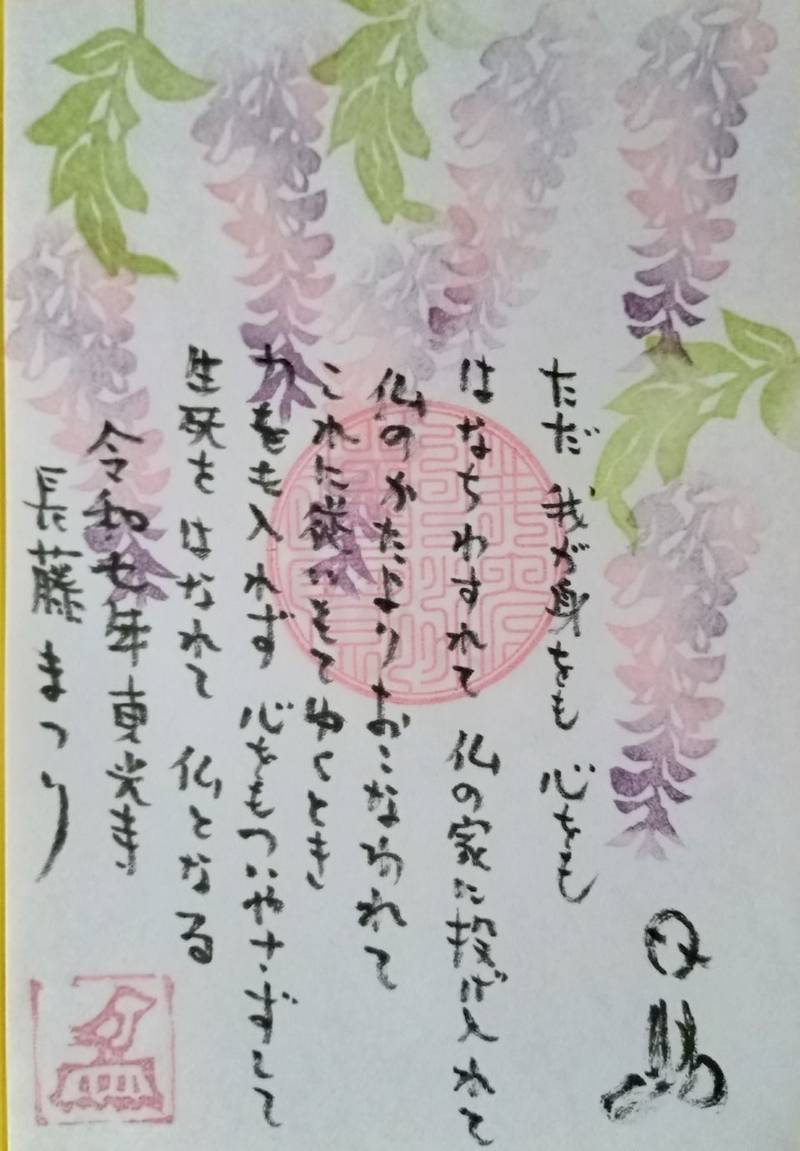 ただ 我が身をも 心をも
はなちわすれて 仏の家に投げ入れて
仏のかたより おこなわれて
これに従いもて ゆくとき
力をも入れず 心をもついやさずして
生死を はなれて 仏となる
令和七年 東光寺
長藤まつり